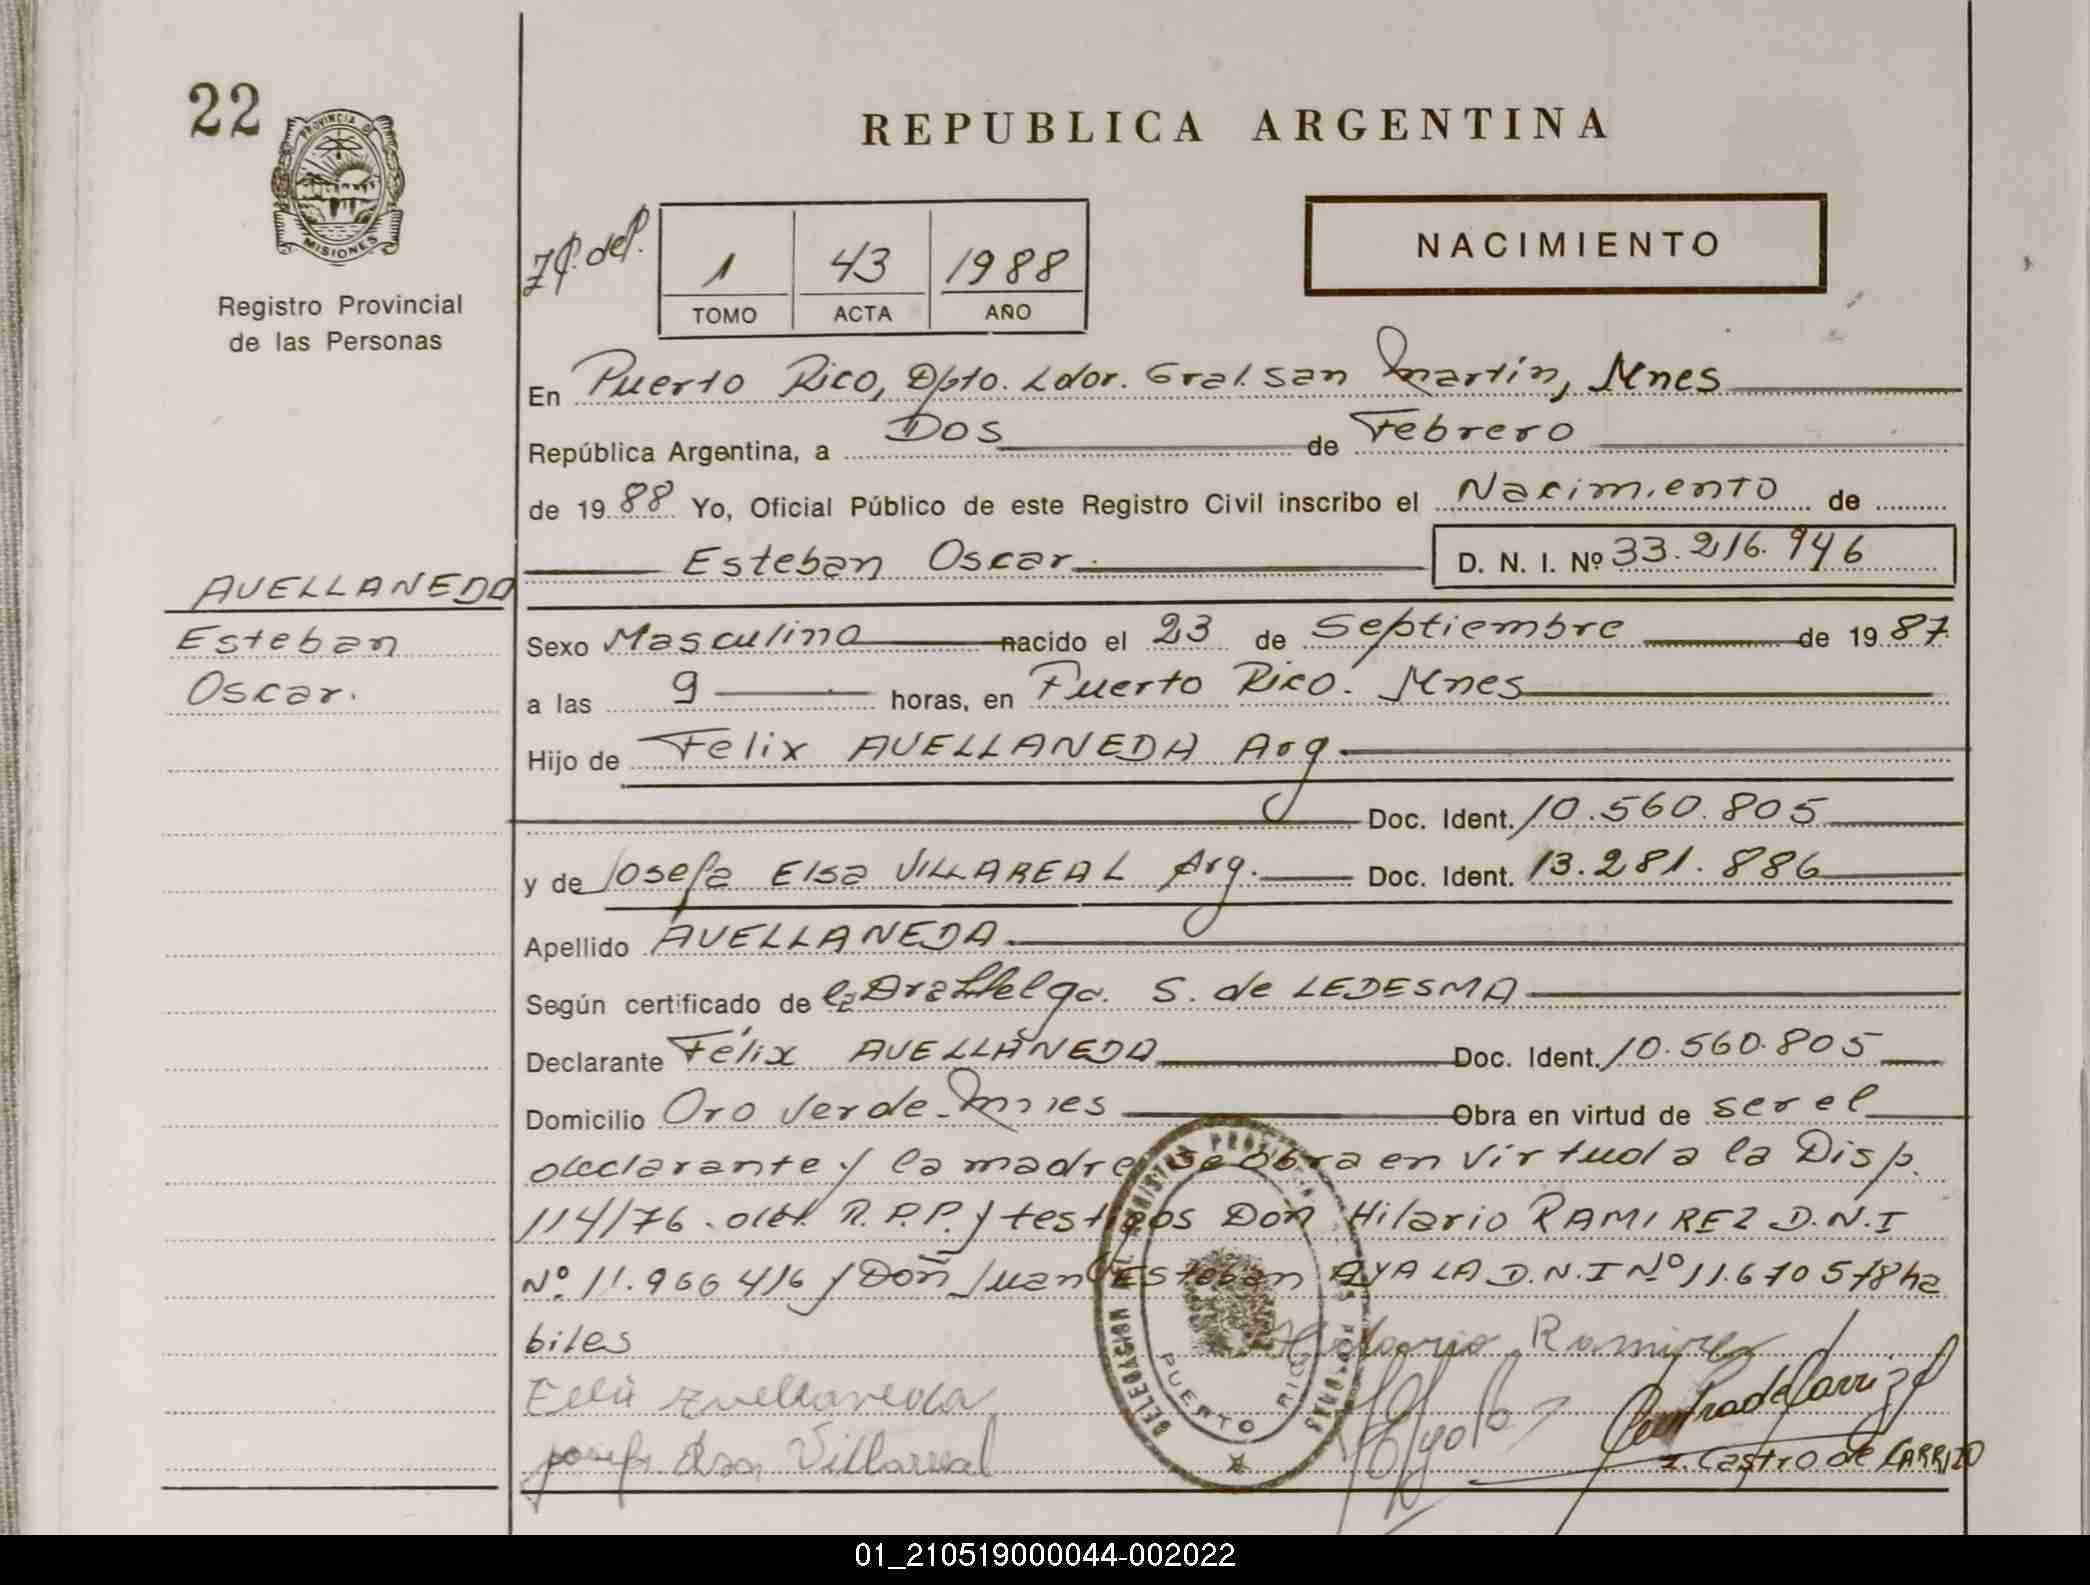 22
PROVINCIA D
MISIONES
Registro Provincial
de las Personas
REPUBLICA ARGENTINA
NACIMIENTO
1 43 1988
TOMO ACTA AÑO
En Puerto Rico, Dpto. Ldor. Gral. San Martín, Mnes
República Argentina, a Dos de Febrero
de 1988 Yo, Oficial Público de este Registro Civil inscribo el Nacimiento de
Esteban Oscar.
D. N. I. Nº 33.216.946
AVELLANEDA
Esteban
Oscar.
Sexo Masculino nacido el 23 de Septiembre de 1987
a las 9 horas, en Puerto Rico. Mnes
Hijo de Felix AVELLANEDA Arg
Doc. Ident. 10.560.805
y de Josefa Elsa VILLAREAL Arg. Doc. Ident. 13.281.886
Apellido AVELLANEDA
Según certificado de la Dra Helga. S. de LEDESMA
Declarante Félix AVELLANEDA Doc. Ident. 10.560.805
Domicilio Oro Verde-Mnes Obra en virtud de ser el
declarante y la madre se obra en virtud a la Disp.
114/76. del R.P.P. y testigos Don Hilario RAMIREZ D.N.I
Nº 11.966 416 y Don Juan Esteban AYALA D.N.I Nº 11.670578 ha
biles
Hilario Ramirez
Felix Avellaneda
Josefa Elsa Villarreal
Z. Castro de CARRIZO
DELEGACION DEL REGISTRO PROVINCIAL DE LAS PERSONAS
PUERTO RICO
01_210519000044-002022